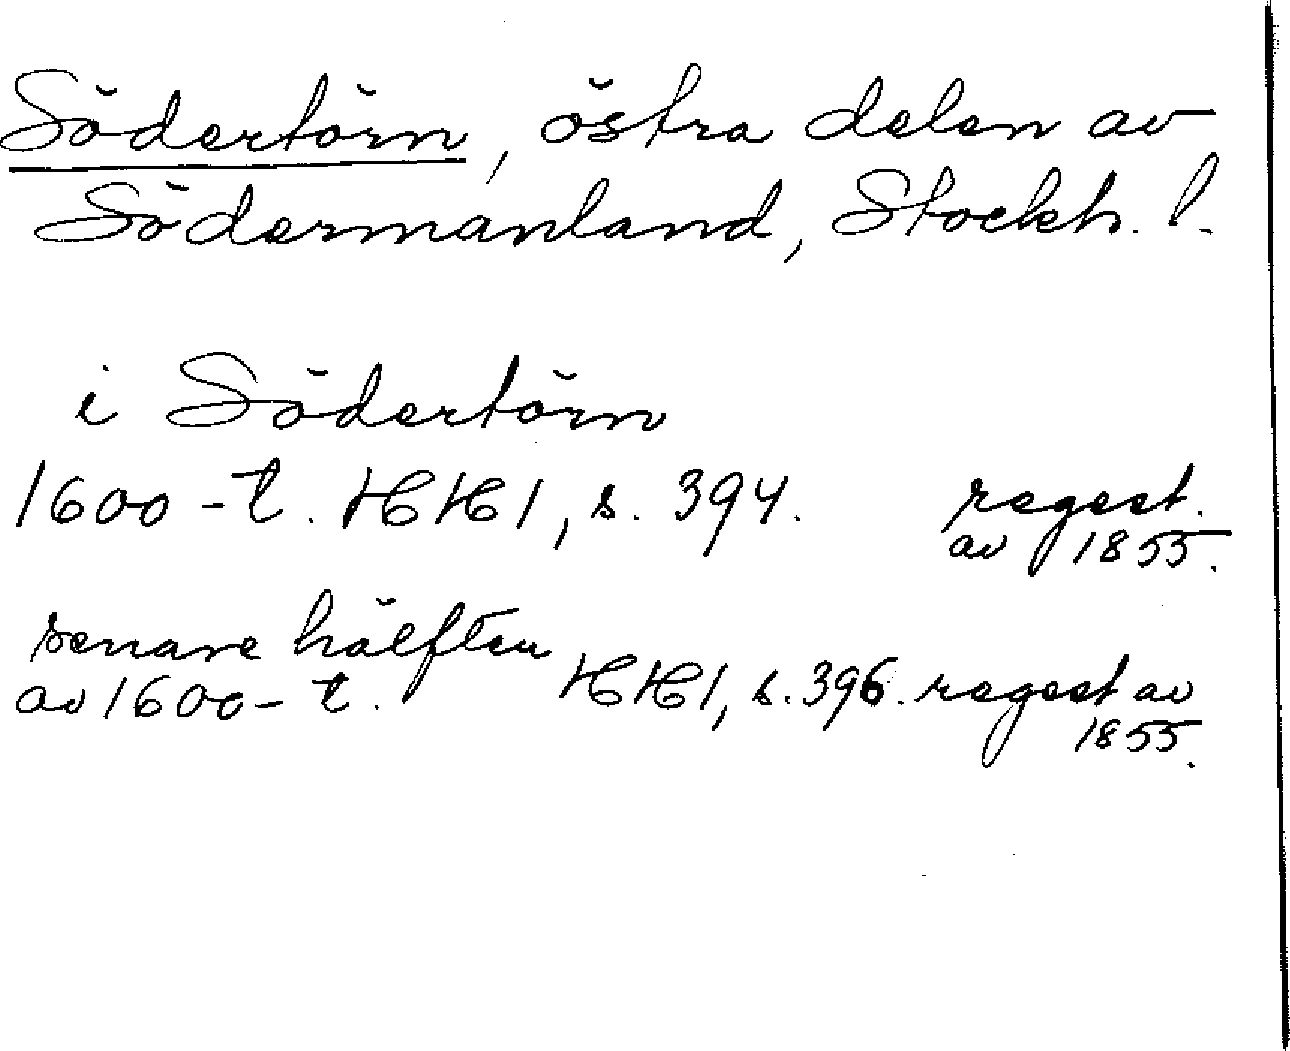 Södertörn, östra delen av
Södermanland, Stockh. l.
i Södertörn
1600-t. HH1, s. 394. regest.
av 1855.
senare hälften
av 1600-t. HH1, s. 396. regest av
1855.